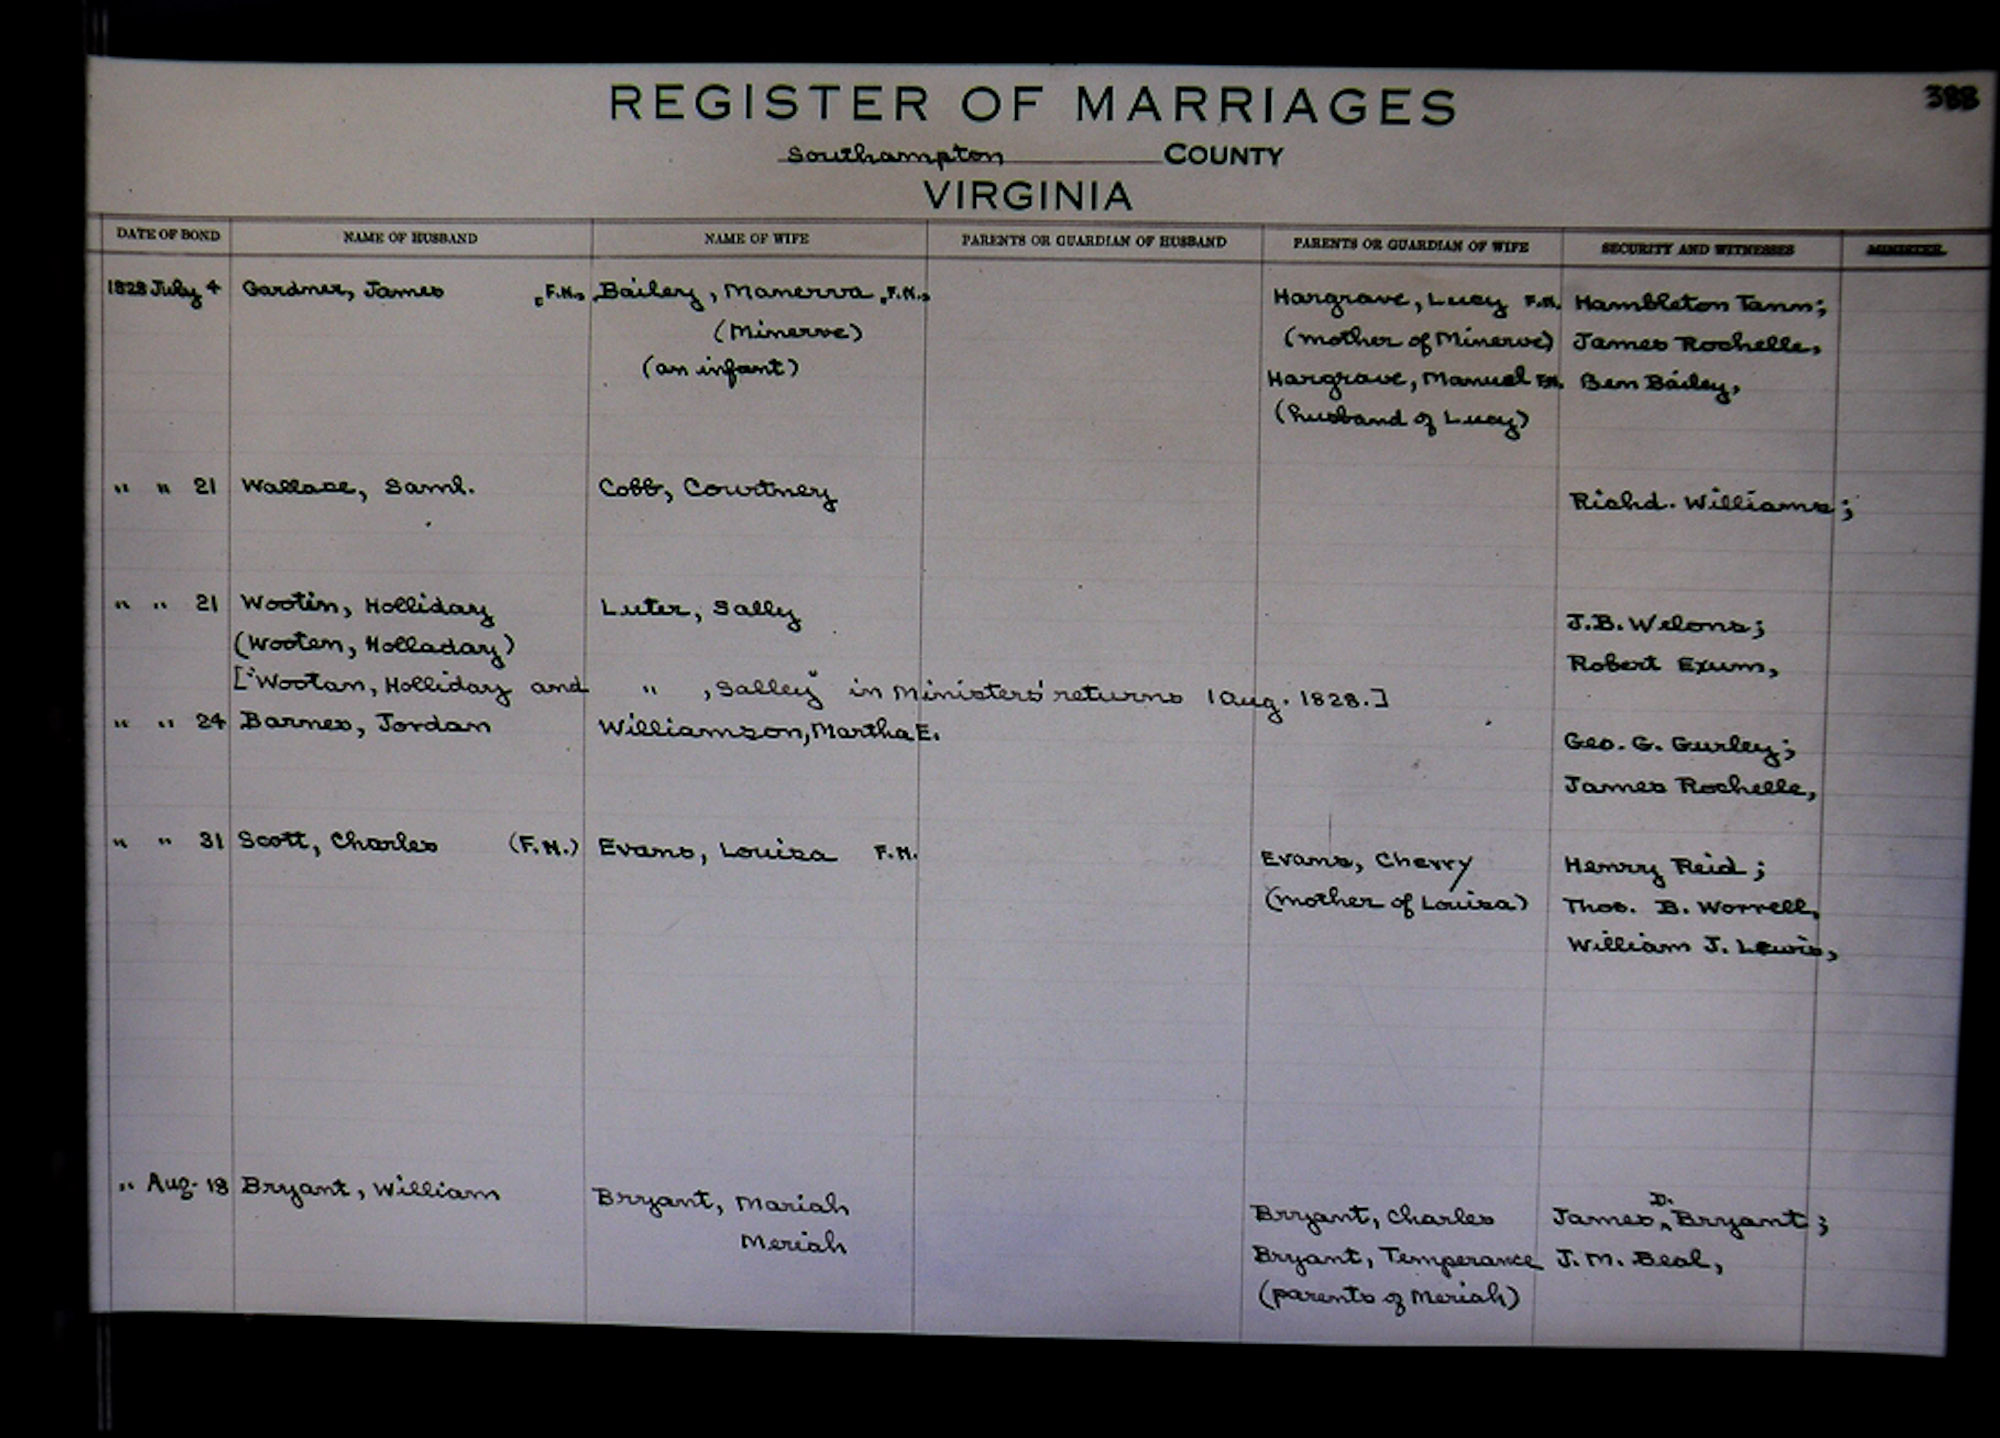 388
REGISTER OF MARRIAGES
Southampton COUNTY
VIRGINIA
DATE OF BOND NAME OF HUSBAND NAME OF WIFE PARENTS OR GUARDIAN OF HUSBAND PARENTS OR GUARDIAN OF WIFE SECURITY AND WITNESSES MINISTER
1828 July 4 Gardner, James F.N., Bailey, Manerva F.N., Hargrave, Lucy F.N. Hambleton Tann;
(Minerve) (mother of Minerve) James Rochelle,
(an infant) Hargrave, Manuel F.N. Ben Bailey,
(husband of Lucy)
" " 21 Wallace, Saml. Cobb, Courtney Richd. Williams;
" " 21 Wootin, Holliday Luter, Sally J.B. Welons;
(Wooten, Holladay) Robert Exum,
["Wootan, Holliday and " , Salley" in Ministers' returns 1 Aug. 1828.]
" " 24 Barnes, Jordan Williamson, Martha E. Geo. G. Gurley;
James Rochelle,
" " 31 Scott, Charles (F.N.) Evans, Louisa F.N. Evans, Cherry Henry Reid;
(mother of Louisa) Thos. B. Worrell,
William J. Lewis,
" Aug. 18 Bryant, William Bryant, Mariah Bryant, Charles James D. Bryant;
Meriah Bryant, Temperance J. M. Beal,
(parents of Meriah)